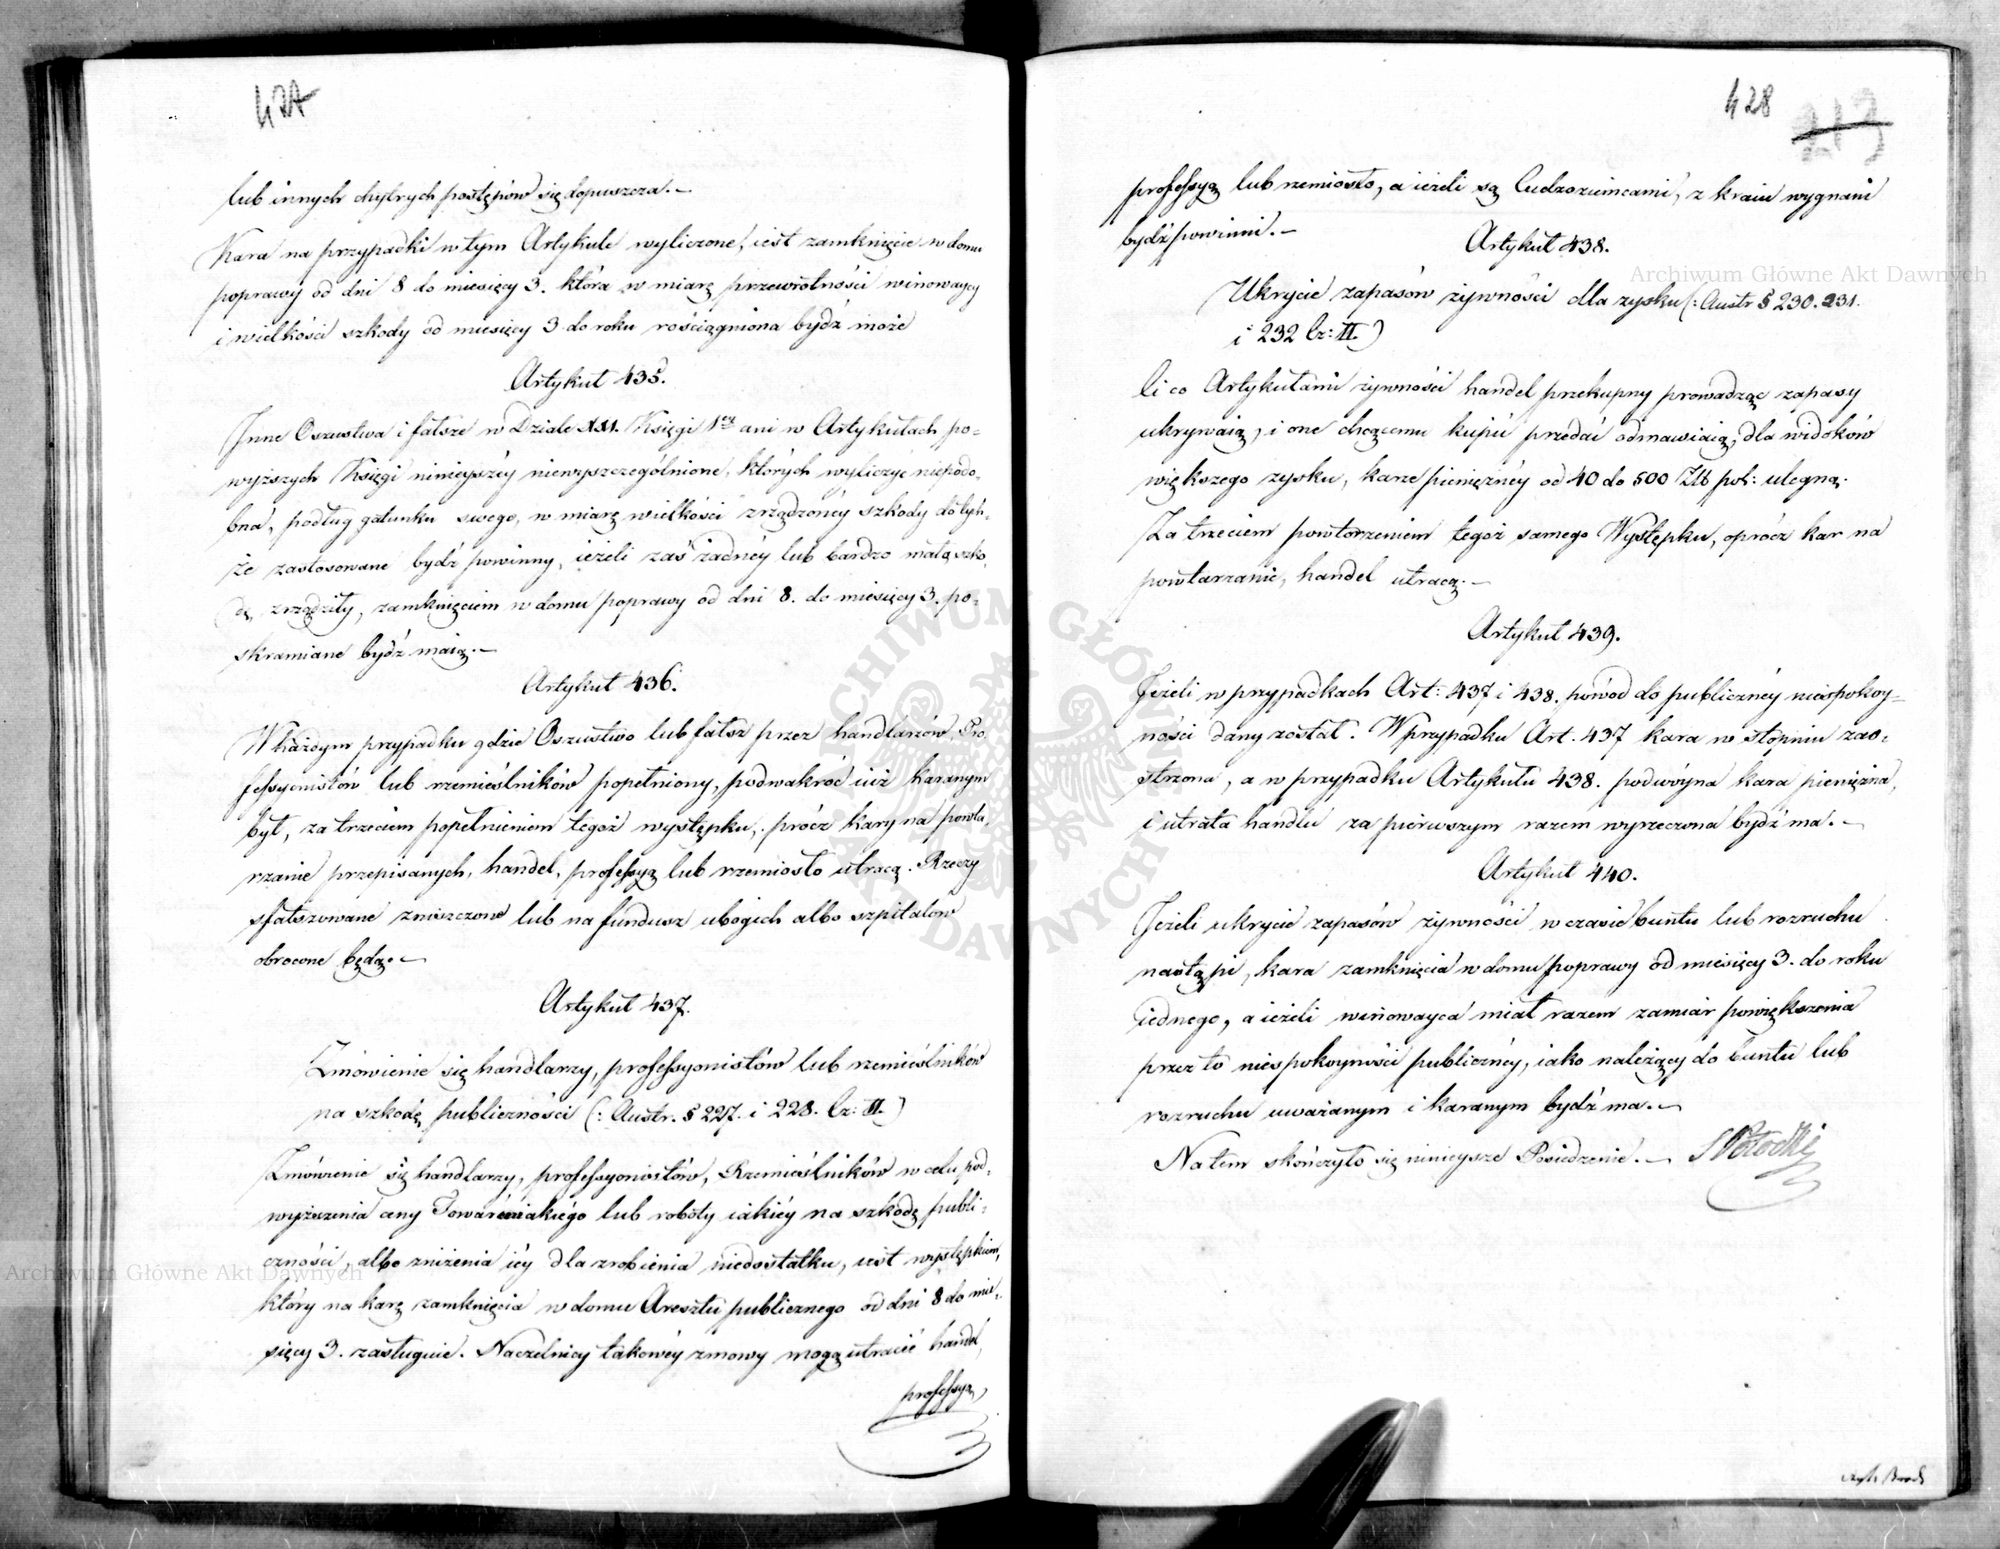 427
lub innych chytrych postępów się dopuszcza.–
Kara na przypadki w tym Artykule wyliczone, iest zamknięcie w domu
poprawy od dni 8 do miesięcy 3. która w miarę przewrotności winowaycy
i wielkości szkody od miesięcy 3 do roku rościągniona bydź może
Artykuł 435.
Inne Oszustwa i fałsze w Dziale XXI. Księgi 1ey ani w Artykułach po-
wyższych Księgi ninieyszéy niewyszczególnione, których wyliczyć niepodo-
bna, podług gatunku swego, w miarę wielkości zrządzonéy szkody do tych-
że zastosowane bydź powinny, ieżeli zaś żadnéy lub bardzo małą szko-
dę zrządziły, zamknięciem w domu poprawy od dni 8. do miesięcy 3. po-
skramiane bydź maią.–
Artykuł 436.
W każdym przypadku gdzie Oszustwo lub fałsz przez handlarzów, Pro-
fessyonistów lub rzemieślników popełniony, podwakroć iuż karanym
był, za trzeciem popełnieniem tegoż występku, prócz kary na powta-
rzanie przepisanych, handel, professyą lub rzemiosło utracą. Rzeczy
sfałszowane zniszczone lub na fundusz ubogich albo szpitalów
obrocone będą.–
Artykuł 437.
Zmówienie się handlarzy, professyonistów lub rzemieślników
na szkodę publiczności (: Austr. § 227. i 228. Cz: II.)
Zmówienie się handlarzy, professyonistów, Rzemieślników w celu pod-
wyższenia ceny Towaru iakiégo lub roboty iakiéy na szkodę publi-
czności, albo zniżenia iéy dla zrobienia niedostatku, iest występkiem,
który na karę zamknięcia w domu Aresztu publicznego od dni 8 do mie-
sięcy 3. zasługuie. Naczelnicy takowéy zmowy mogą utracić handel,
professyą,
428
213
professyą lub rzemiosło, a ieżeli są Cudzoziemcami, z kraiu wygnani
bydź powinni.–
Artykuł 438.
Ukrycie zapasów żywności dla zysku (: Austr § 230. 231.
i 232 Cz: II.)
Ci co Artykułami żywności handel przekupny prowadząc zapasy
ukrywaią, i one chcącemu kupić przedać odmawiaią, dla widoków
większego zysku, karze pieniężnéy od 40 do 500 Złł pol: ulegną.
Za trzeciem powtorzeniem tegoż samego Występku, oprócz kar na
powtarzanie, handel utracą.–
Artykuł 439.
Jeżeli w przypadkach Art: 437 i 438. powód do publicznéy niespokoy-
ności dany został. W przypadku Art. 437 kara w stopniu zao-
strzona, a w przypadku Artykułu 438. podwóyna kara pieniężna,
i utrata handlu za pierwszym razem wyrzeczona bydź ma.–
Artykuł 440.
Jeżeli ukrycie zapasów żywności w czasie buntu lub rozruchu
nastąpi, kara zamknięcia w domu poprawy od miesięcy 3. do roku
iednego, a ieżeli winowayca miał razem zamiar powiększenia
przez to niespokoyności publicznéy, iako należący do buntu lub
rozruchu uważanym i karanym bydź ma.–
Na tem skończyło się ninieysze Posiedzenie.– S Potocki
Archiwum Główne Akt Dawnych
Archiwum Główne Akt Dawnych
ARCHIWUM GŁÓWNE AKT DAWNYCH